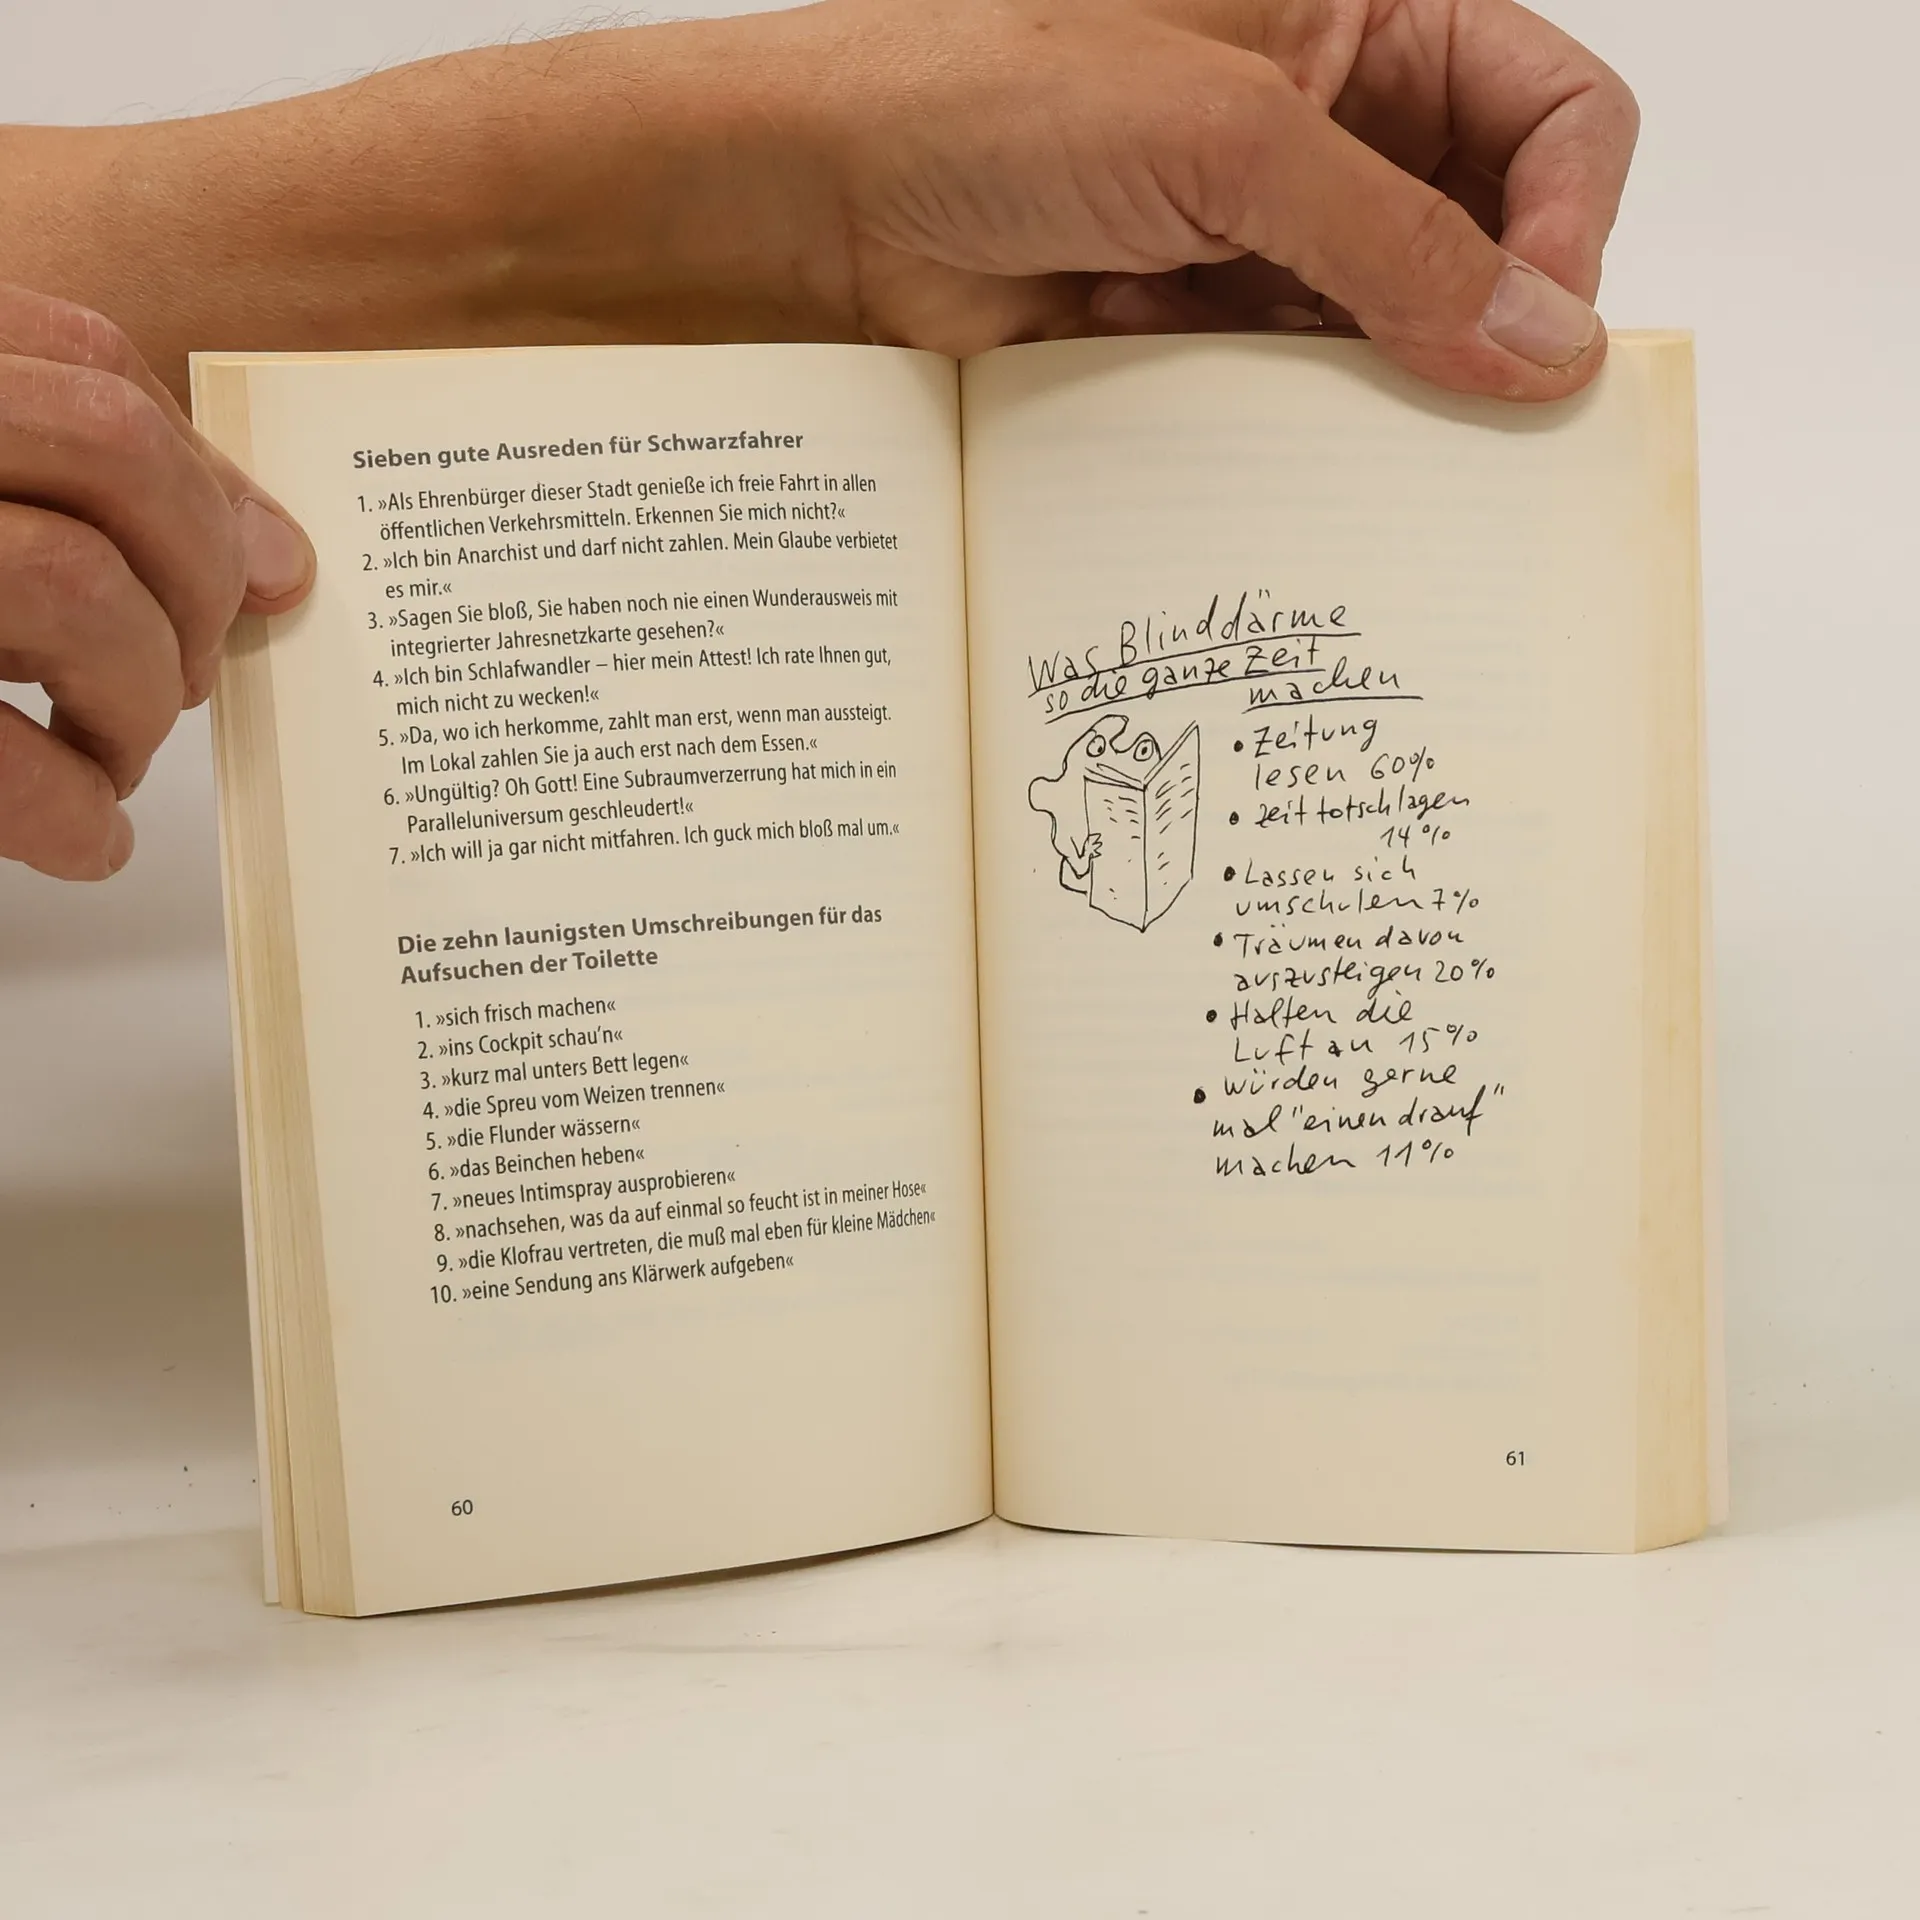 Sieben gute Ausreden für Schwarzfahrer
1. »Als Ehrenbürger dieser Stadt genieße ich freie Fahrt in allen
öffentlichen Verkehrsmitteln. Erkennen Sie mich nicht?«
2. »Ich bin Anarchist und darf nicht zahlen. Mein Glaube verbietet
es mir.«
3. »Sagen Sie bloß, Sie haben noch nie einen Wunderausweis mit
integrierter Jahresnetzkarte gesehen?«
4. »Ich bin Schlafwandler – hier mein Attest! Ich rate Ihnen gut,
mich nicht zu wecken!«
5. »Da, wo ich herkomme, zahlt man erst, wenn man aussteigt.
Im Lokal zahlen Sie ja auch erst nach dem Essen.«
6. »Ungültig? Oh Gott! Eine Subraumverzerrung hat mich in ein
Paralleluniversum geschleudert!«
7. »Ich will ja gar nicht mitfahren. Ich guck mich bloß mal um.«
Die zehn launigsten Umschreibungen für das
Aufsuchen der Toilette
1. »sich frisch machen«
2. »ins Cockpit schau'n«
3. »kurz mal unters Bett legen«
4. »die Spreu vom Weizen trennen«
5. »die Flunder wässern«
6. »das Beinchen heben«
7. »neues Intimspray ausprobieren«
8. »nachsehen, was da auf einmal so feucht ist in meiner Hose«
9. »die Klofrau vertreten, die muß mal eben für kleine Mädchen«
10. »eine Sendung ans Klärwerk aufgeben«
60
Was Blinddärme
so die ganze Zeit
machen
• Zeitung
lesen 60%
• Zeit totschlagen
14%
• Lassen sich
umschulen 7%
• Träumen davon
auszusteigen 20%
• Halten die
Luft an 15%
• würden gerne
mal "einen drauf"
machen 11%
61